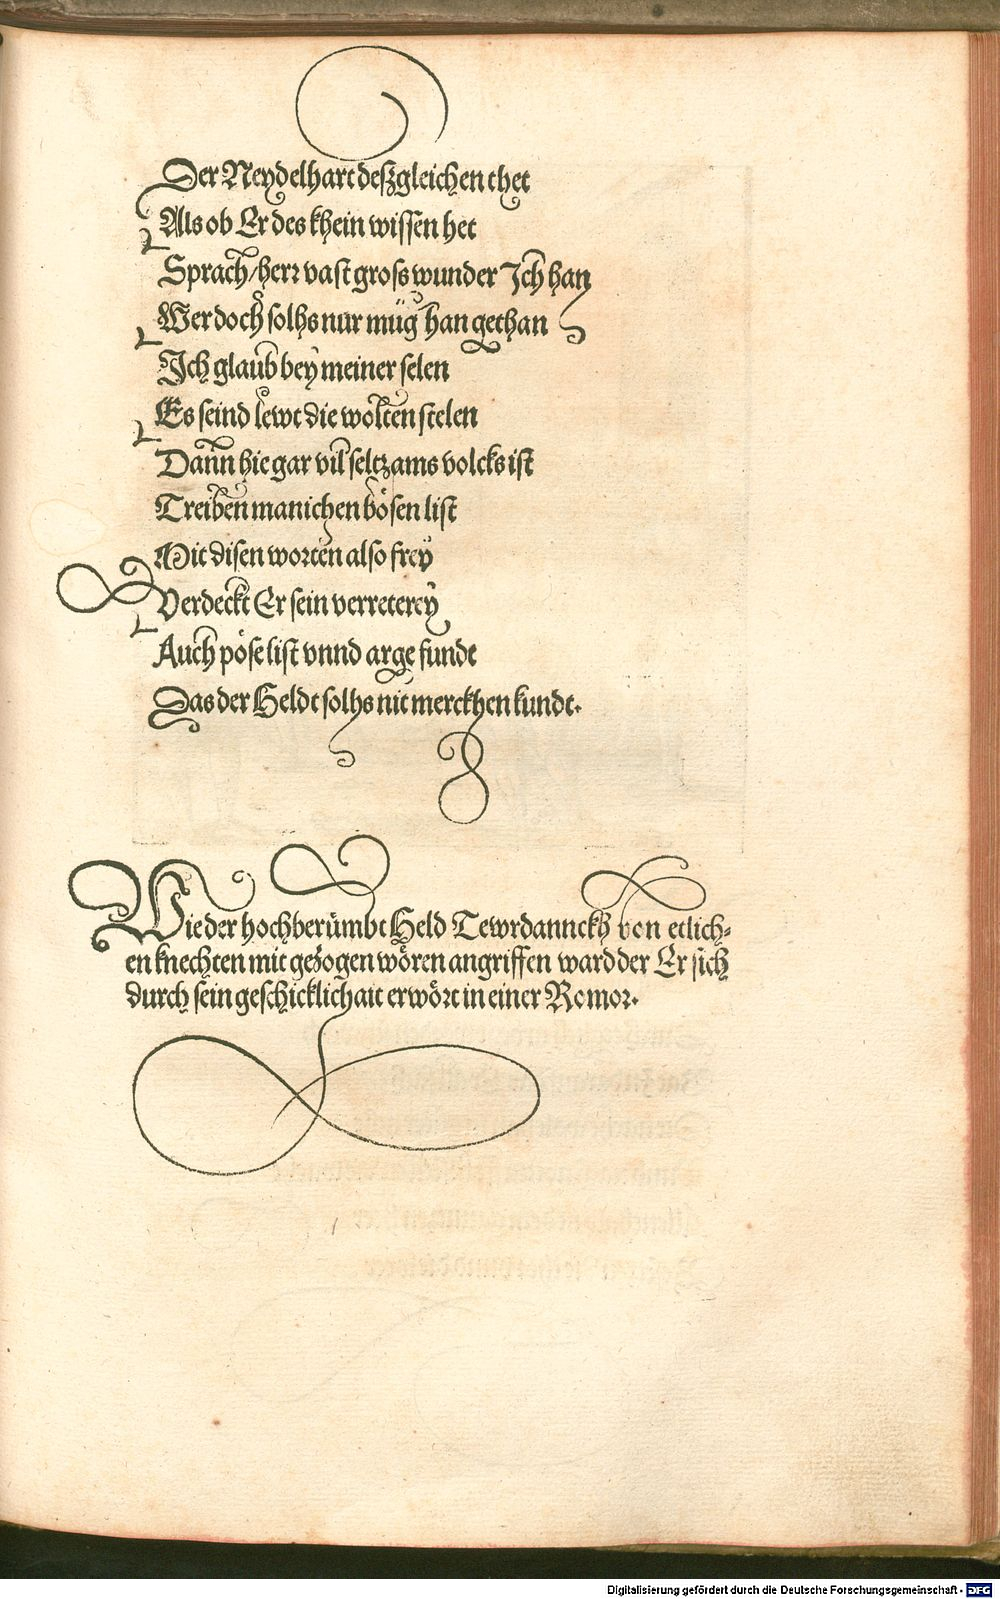 Der Neydelhart deszgleichen thet
Als ob Er des khein wissen het
Sprach/herr vast gross wunder Ich han
Wer doch solhs nur müg han gethan
Ich glaub bey meiner selen
Es seind lewt die wolten stelen
Dann hie gar vil seltzams volcks ist
Treiben manichen bösen list
Mit disen worten also frey
Verdeckt Er sein verreterey
Auch pöse list vnnd arge fundt
Das der Heldt solhs nit merckhen kundt.
Wie der hochberümbt Held Tewrdannckh von etlich-
en knechten mit gezogen wören angriffen ward der Er sich
durch sein geschicklichait erwört in einer Romor.
Digitalisierung gefördert durch die Deutsche Forschungsgemeinschaft - DFG